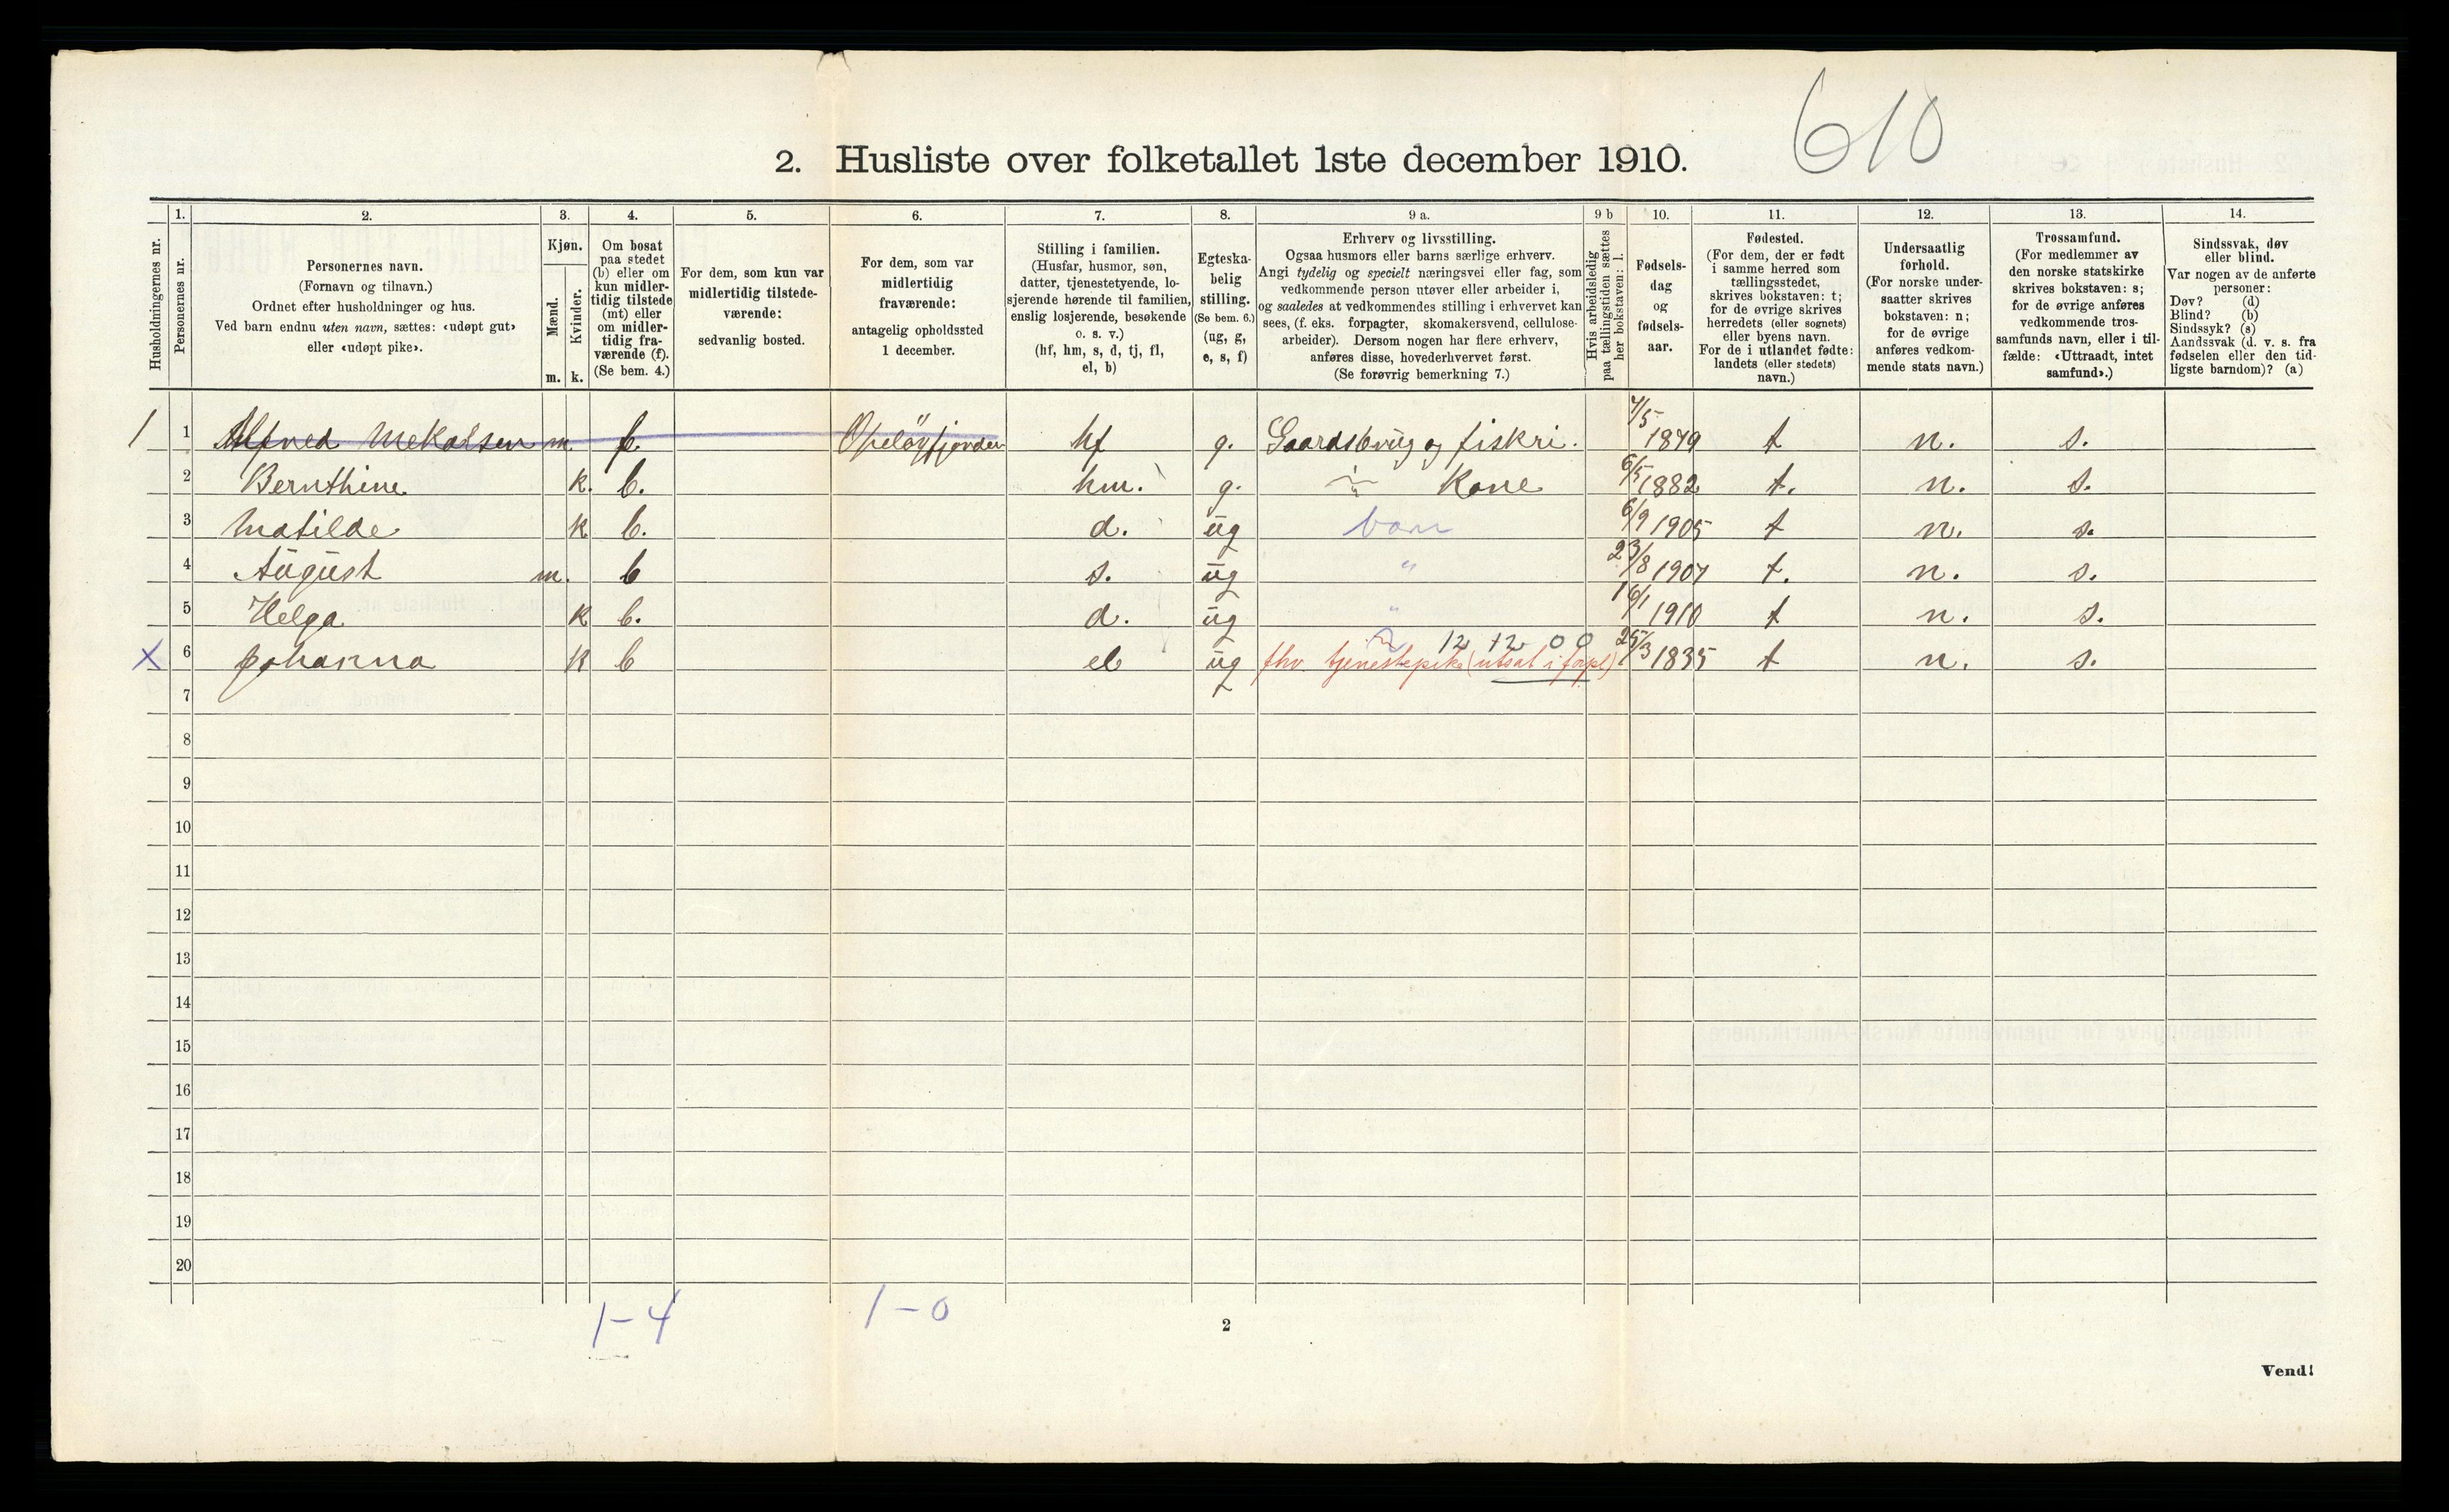 610
2. Husliste over folketallet 1ste december 1910.
1. 2. 3. 4. 5. 6. 7. 8. 9 a. 9 b 10. 11. 12. 13. 14.
Husholdningernes nr.
Personernes nr.
Personernes navn.
(Fornavn og tilnavn.)
Ordnet efter husholdninger og hus.
Ved barn endnu uten navn, sættes: «udøpt gut»
eller «udøpt pike».
Kjøn.
Mænd.
Kvinder.
m. k.
Om bosat
paa stedet
(b) eller om
kun midler-
tidig tilstede
(mt) eller
om midler-
tidig fra-
værende (f).
(Se bem. 4.)
For dem, som kun var
midlertidig tilstede-
værende:
sedvanlig bosted.
For dem, som var
midlertidig
fraværende:
antagelig opholdssted
1 december.
Stilling i familien.
(Husfar, husmor, søn,
datter, tjenestetyende, lo-
sjerende hørende til familien,
enslig losjerende, besøkende
o. s. v.)
(hf, hm, s, d, tj, fl,
el, b)
Egteska-
belig
stilling.
(Se bem. 6.)
(ug, g,
e, s, f)
Erhverv og livsstilling.
Ogsaa husmors eller barns særlige erhverv.
Angi tydelig og specielt næringsvei eller fag, som
vedkommende person utøver eller arbeider i,
og saaledes at vedkommendes stilling i erhvervet kan
sees, (f. eks. forpagter, skomakersvend, cellulose-
arbeider). Dersom nogen har flere erhverv,
anføres disse, hovederhvervet først.
(Se forøvrig bemerkning 7.)
Hvis arbeidsledig
paa tællingstiden sættes
her bokstaven: l.
Fødsels-
dag
og
fødsels-
aar.
Fødested.
(For dem, der er født
i samme herred som
tællingsstedet,
skrives bokstaven: t;
for de øvrige skrives
herredets (eller sognets)
eller byens navn.
For de i utlandet fødte:
landets (eller stedets)
navn.)
Undersaatlig
forhold.
(For norske under-
saatter skrives
bokstaven: n;
for de øvrige
anføres vedkom-
mende stats navn.)
Trossamfund.
(For medlemmer av
den norske statskirke
skrives bokstaven: s;
for de øvrige anføres
vedkommende tros-
samfunds navn, eller i til-
fælde: «Uttraadt, intet
samfund».)
Sindssvak, døv
eller blind.
Var nogen av de anførte
personer:
Døv? (d)
Blind? (b)
Sindssyk? (s)
Aandssvak (d. v. s. fra
fødselen eller den tid-
ligste barndom)? (a)
1 1 Alfred m. f. hf g. Gaardsbrug og fiskri. 7/5 1879 t n. s.
2 Bernthine k. b. hm. g. Kone 6/5 1882 t. n. s.
3 Matilde k b. d. ug barn 6/9 1905 t n. s.
4 August m. b s. ug " 23/8 1907 t. n. s.
5 Helga k b. d. ug " 16/1 1910 t n. s.
12 12 0 0
X 6 Johanna k b el ug fhv. tjenestepike (utsat i forpl) 25/3 1835 t n. s.
7
8
9
10
11
12
13
14
15
16
17
18
19
20
1-4 1-0
2
Vend!